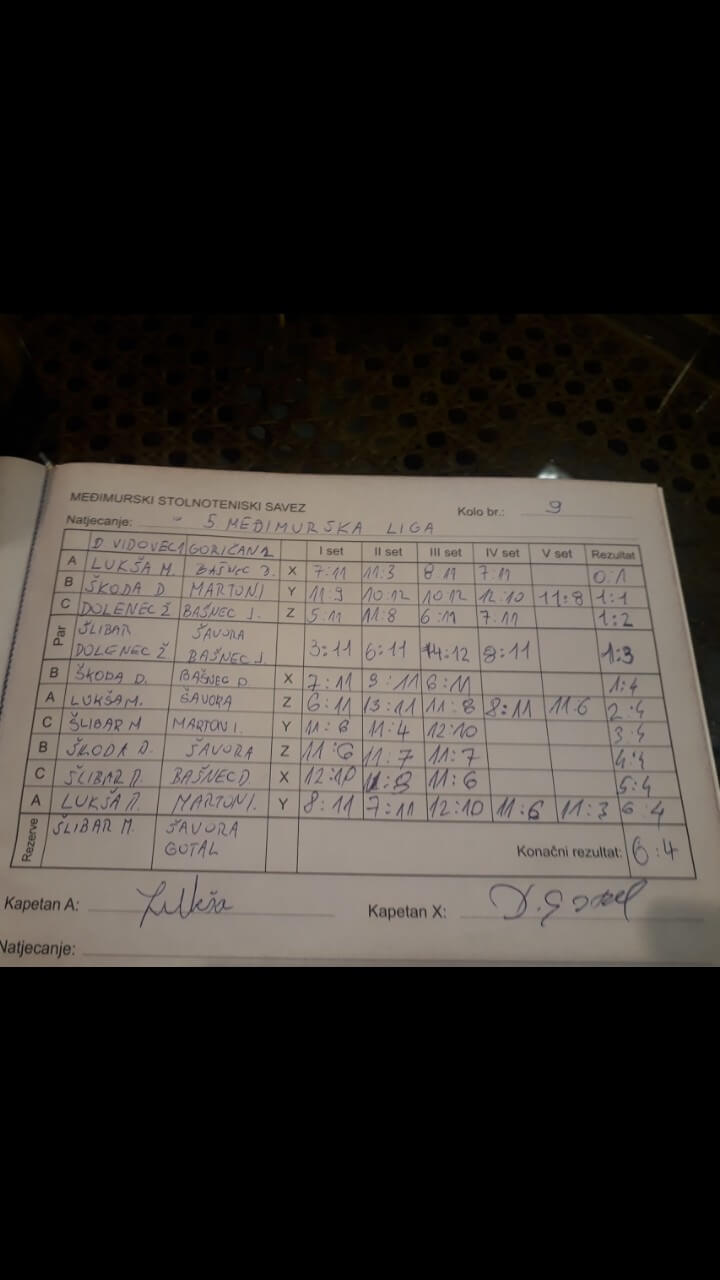 MEĐIMURSKI STOLNOTENISKI SAVEZ
Kolo br.: 9
Natjecanje: 5 MEĐIMURSKA LIGA
D VIDOVEC 1 GORIČAN 2 I set II set III set IV set V set Rezultat
A LUKŠA M. BAŠNEC D. X 7:11 11:3 8:11 7:11 0:1
B ŠKODA D MARTONI Y 11:9 10:12 10:12 12:10 11:8 1:1
C DOLENEC Ž BAŠNEC J. Z 5:11 11:8 6:11 7:11 1:2
Par ŠLIBAR ŠAVORA
DOLENEC Ž BAŠNEC J. 3:11 6:11 14:12 8:11 1:3
B ŠKODA D. BAŠNEC D X 7:11 9:11 6:11 1:4
A LUKŠA M. ŠAVORA Z 6:11 13:11 11:8 8:11 11:6 2:4
C ŠLIBAR M MARTONI. Y 11:8 11:4 12:10 3:4
B ŠKODA D. ŠAVORA Z 11:6 11:7 11:7 4:4
C ŠLIBAR M. BAŠNEC D. X 12:10 11:8 11:6 5:4
A LUKŠA M. MARTONI. Y 8:11 7:11 12:10 11:6 11:3 6:4
Rezerve ŠLIBAR M. ŠAVORA
GOTAL
Konačni rezultat: 6:4
Kapetan A: Lukša
Kapetan X:
Natjecanje: